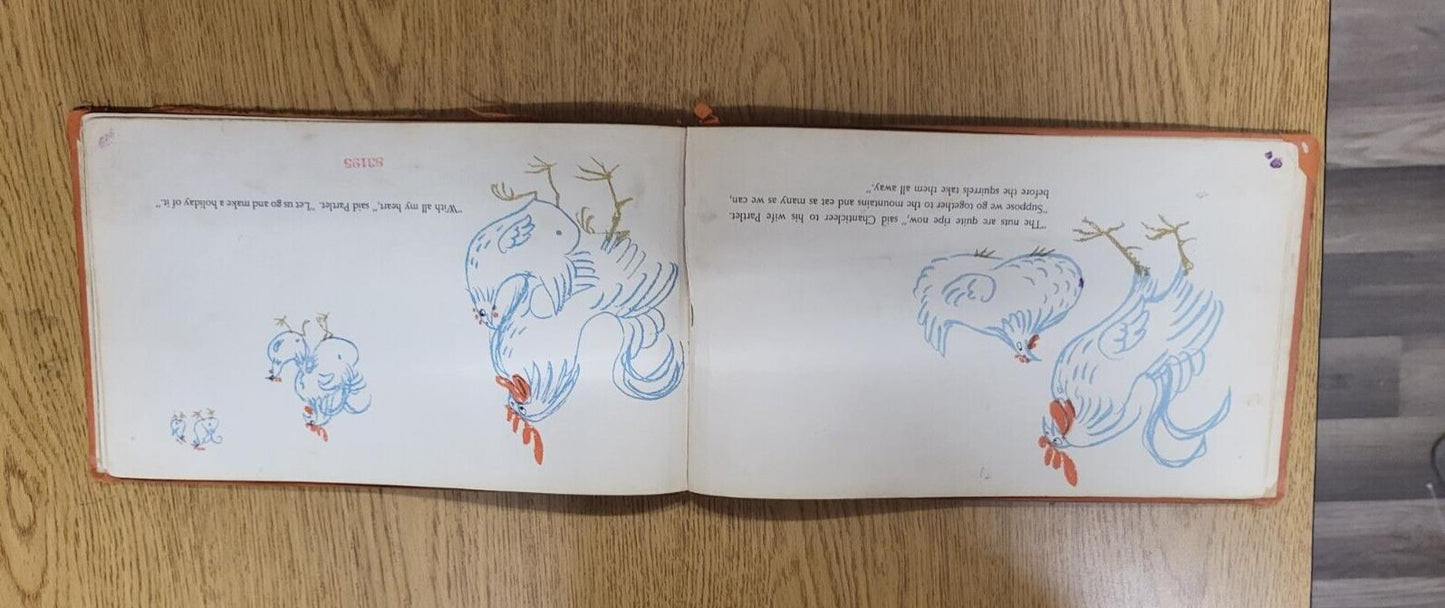 "The nuts are quite ripe now," said Chanticleer to his wife Partlet.
"Suppose we go together to the mountains and eat as many as we can,
before the squirrels take them all away."
"With all my heart," said Partlet. "Let us go and make a holiday of it."
83195